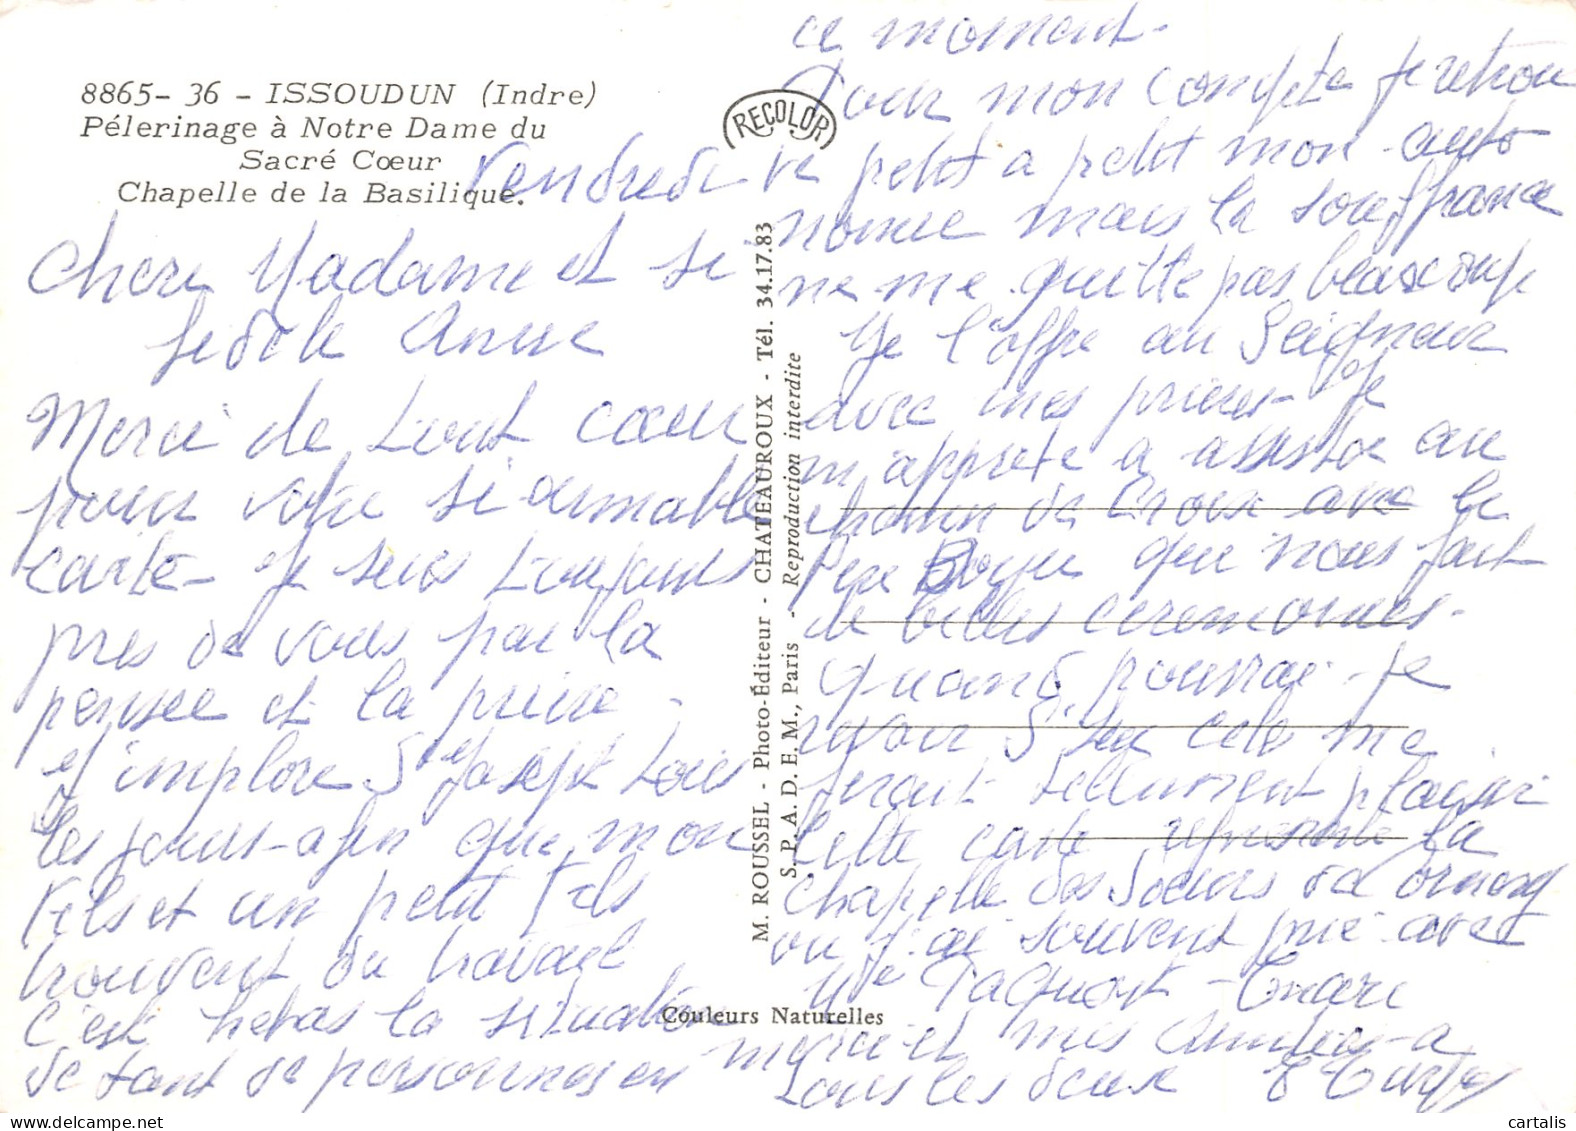 8865- 36 - ISSOUDUN (Indre)
Pélerinage à Notre Dame du
Sacré Cœur
Chapelle de la Basilique.
RECOLOR
Vendredi
Chere Madame et si
fidele Anne
Merci de tout cœur
pour votre si aimable
carte - Je suis toujours
pres de vous par la
pensee et la priere -
J'implore St Joseph tous
les jours - afin que mon
Fils et un petit Fils
trouvent du travail
C'est helas la situation
de tant de personnes en
M. ROUSSEL - Photo-Éditeur - CHATEAUROUX - Tél. 34.17.83
S. P. A. D. E. M., Paris - Reproduction interdite
Couleurs Naturelles
ce moment -
Pour mon compte Je retrou
ve petit a petit mon auto
nomie mais la souffrance
ne me quitte pas beaucoup
Je l'offre au Seigneur
avec mes prieres - Je
m'apprete a assister au
chemin de Croix avec le
Pere que nous fait
de belles ceremonies -
Quand pourrai - Je
revoir cela me
ferait tellement plaisir
Cette carte represente la
Chapelle des Soeurs de
ou j'ai souvent prié avec
Mme - Encore
merci et mes Amities a
tous les deux
cartalis